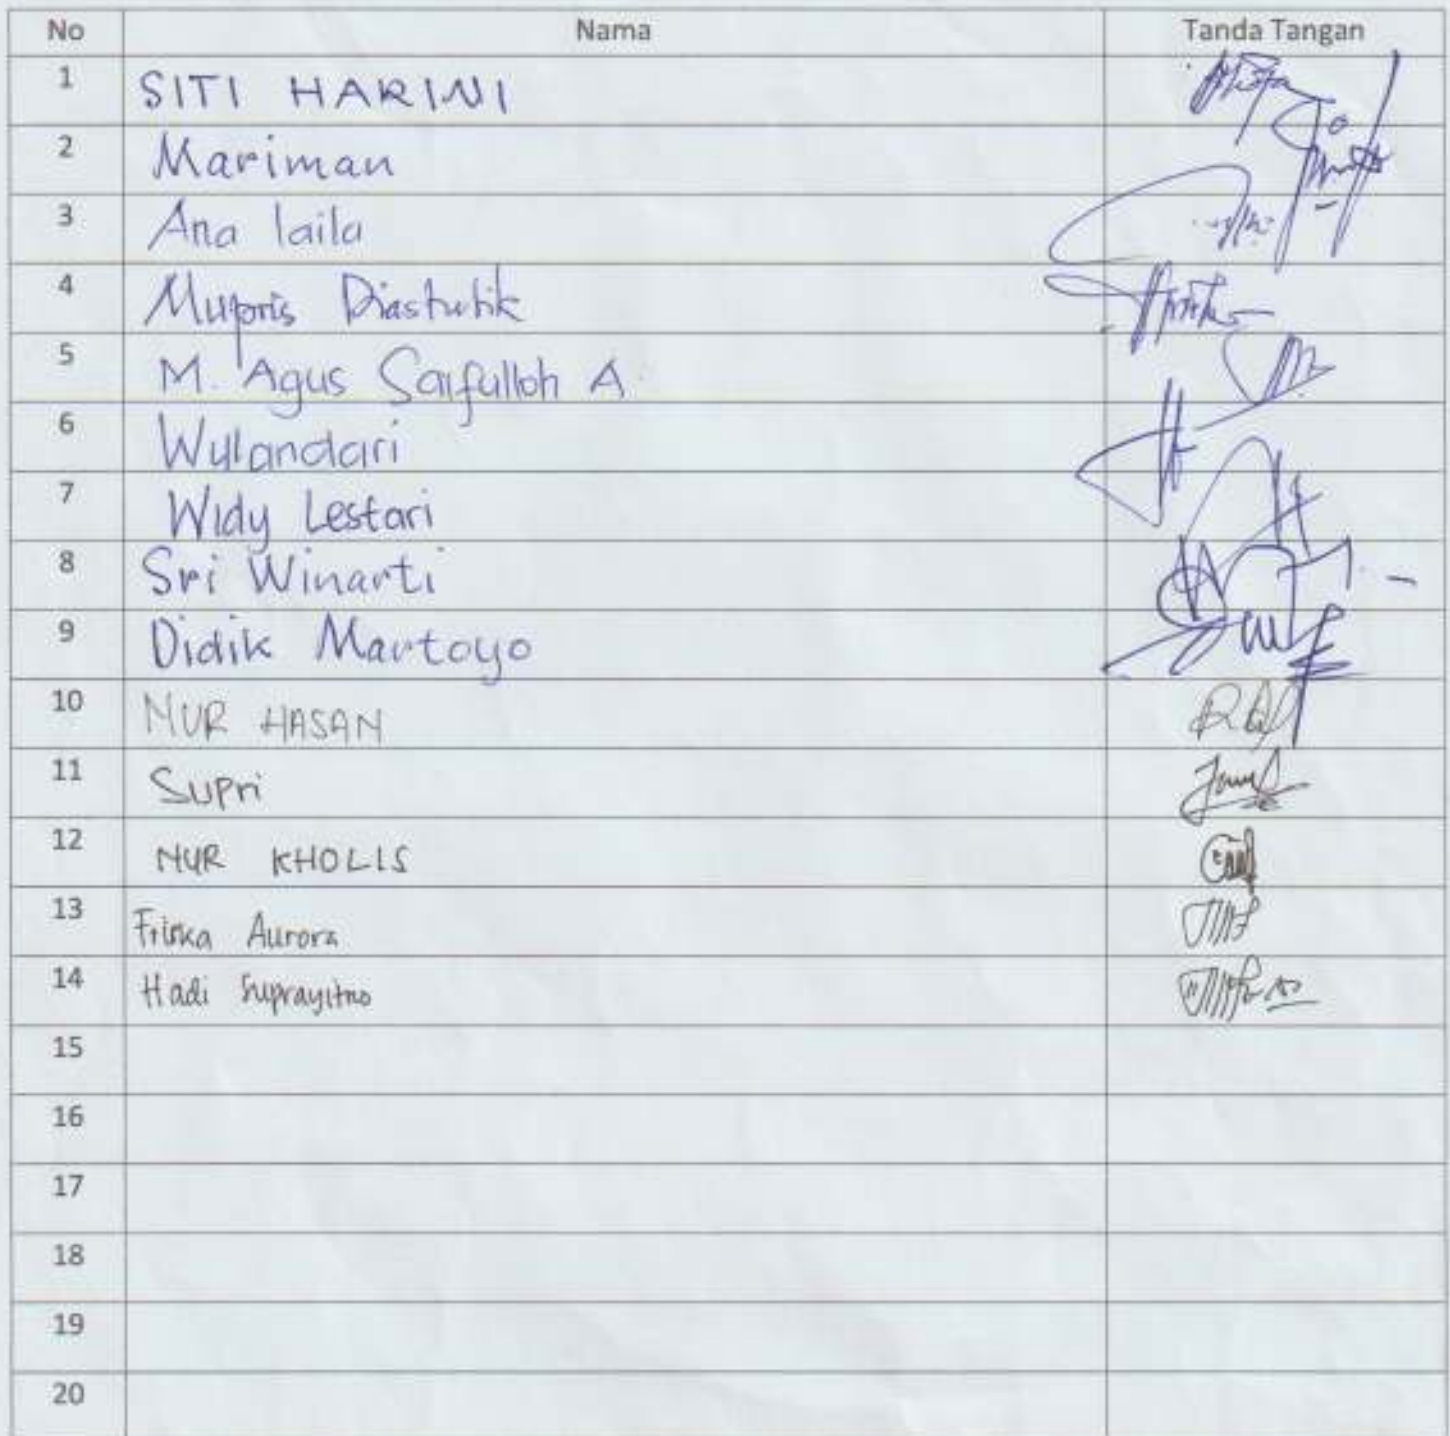 No Nama Tanda Tangan
1 SITI HARINI
2 Mariman
3 Ana laila
4 Mupris Diastutik
5 M. Agus Saifulloh A.
6 Wulandari
7 Widy Lestari
8 Sri Winarti
9 Didik Martoyo
10 NUR HASAN
11 Supri
12 NUR KHOLIS
13 Friska Aurora
14 Hadi Suprayitno
15
16
17
18
19
20